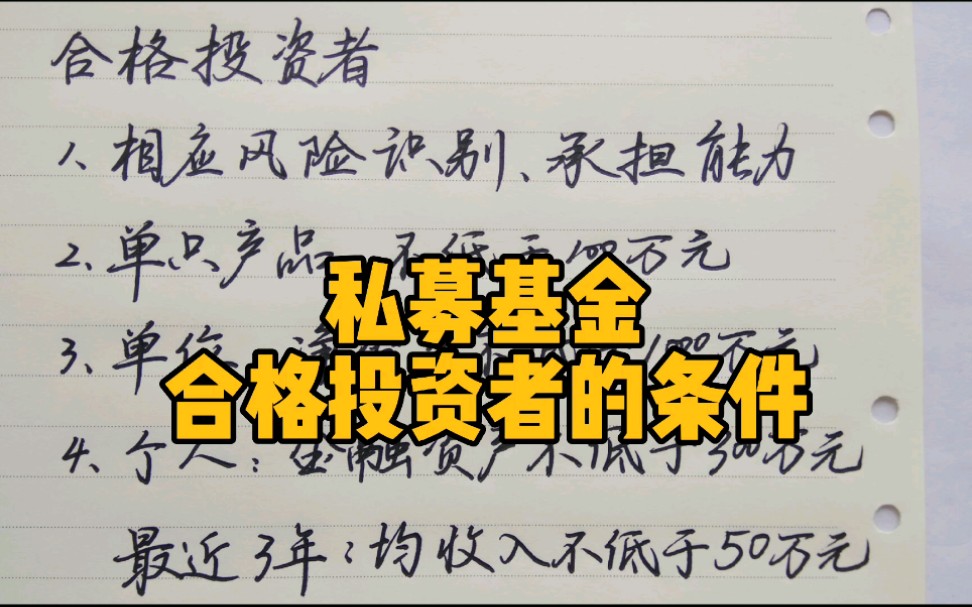 合格投资者
1、相应风险识别、承担能力
2、单只产品 不低于100万元
私募基金
3、单位 1000万元
合格投资者的条件
4、个人：金融资产不低于300万元
最近3年：均收入不低于50万元